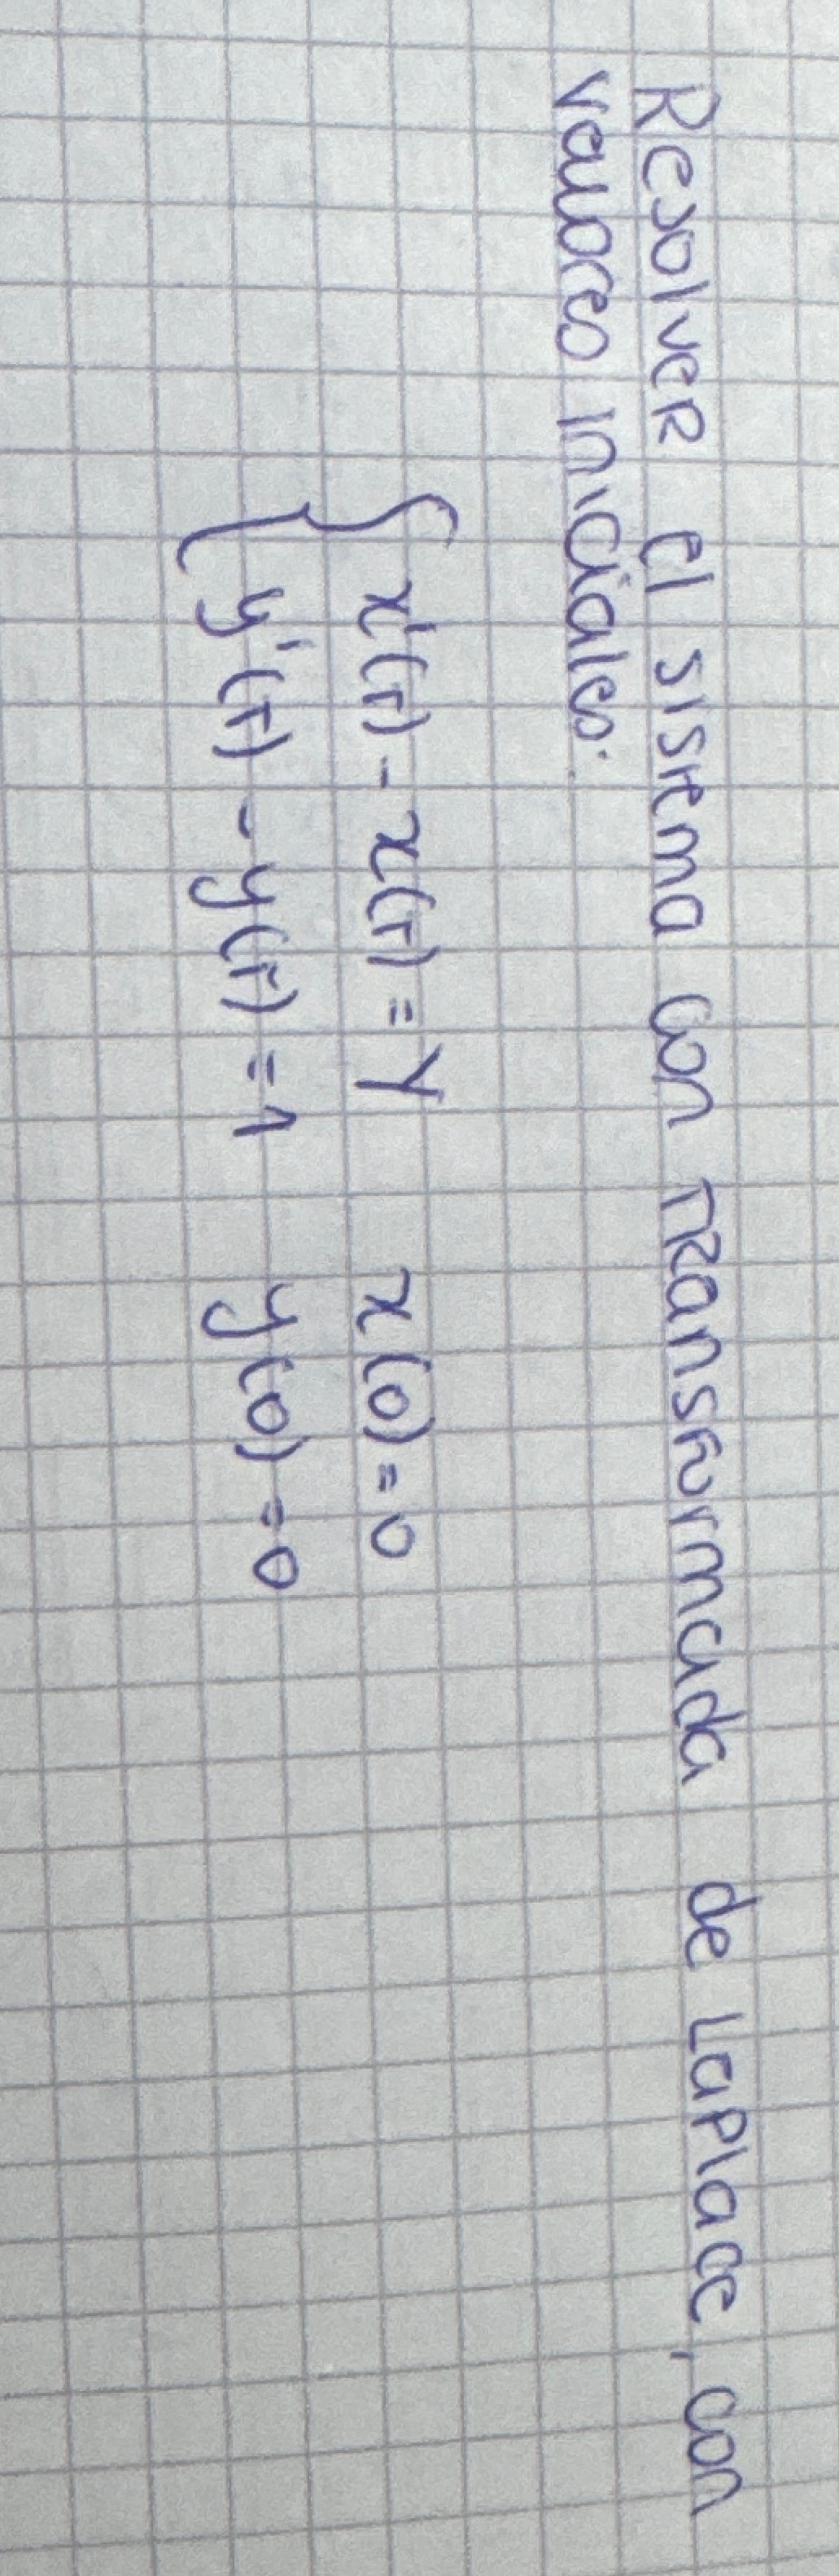 Resolver el sistema con transformada de Laplace, con
valores iniciales.
x'(t) - x(t) = y x(0) = 0
y'(t) - y(t) = 1 y(0) = 0